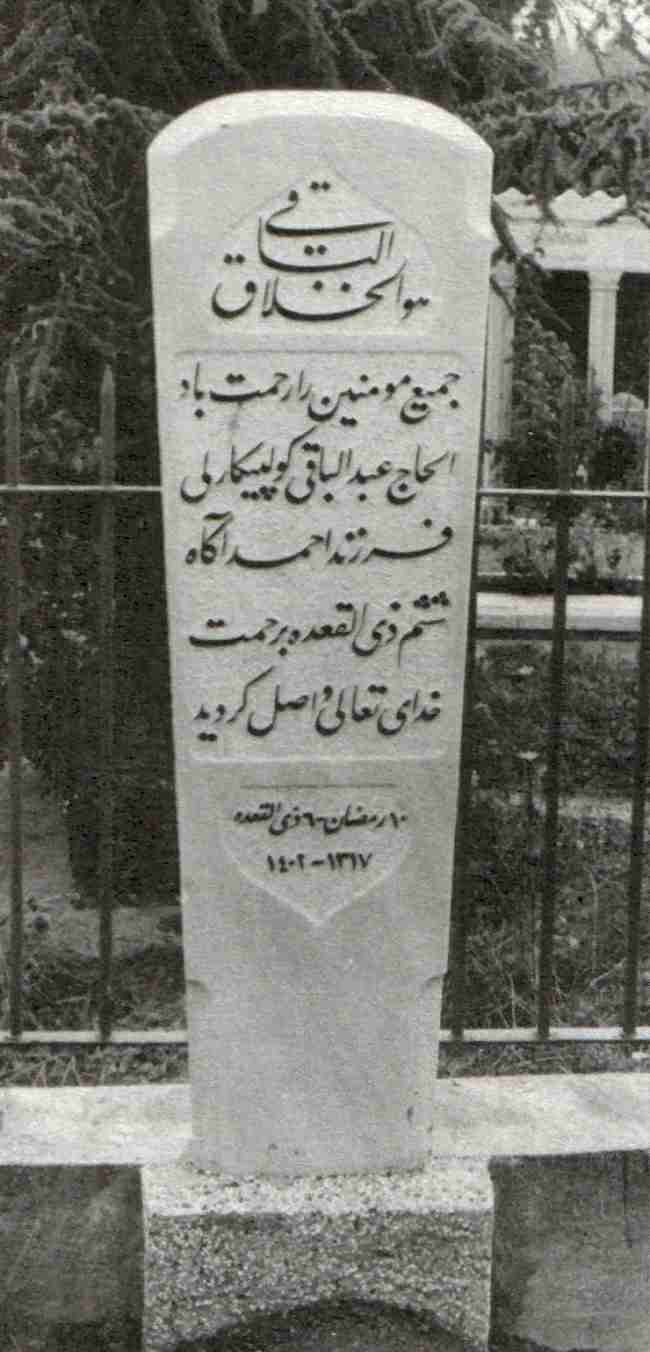 هو الخلاق الباقی
جمیع مومنین را رحمت باد
الحاج عبد الباقی کولپیکارلی
فرزند احمد آکاه
ششم ذی القعده برحمت
خدای تعالی واصل کردید
١٠ رمضان - ٦ ذی القعده
١٣١٧ - ١٤٠٢